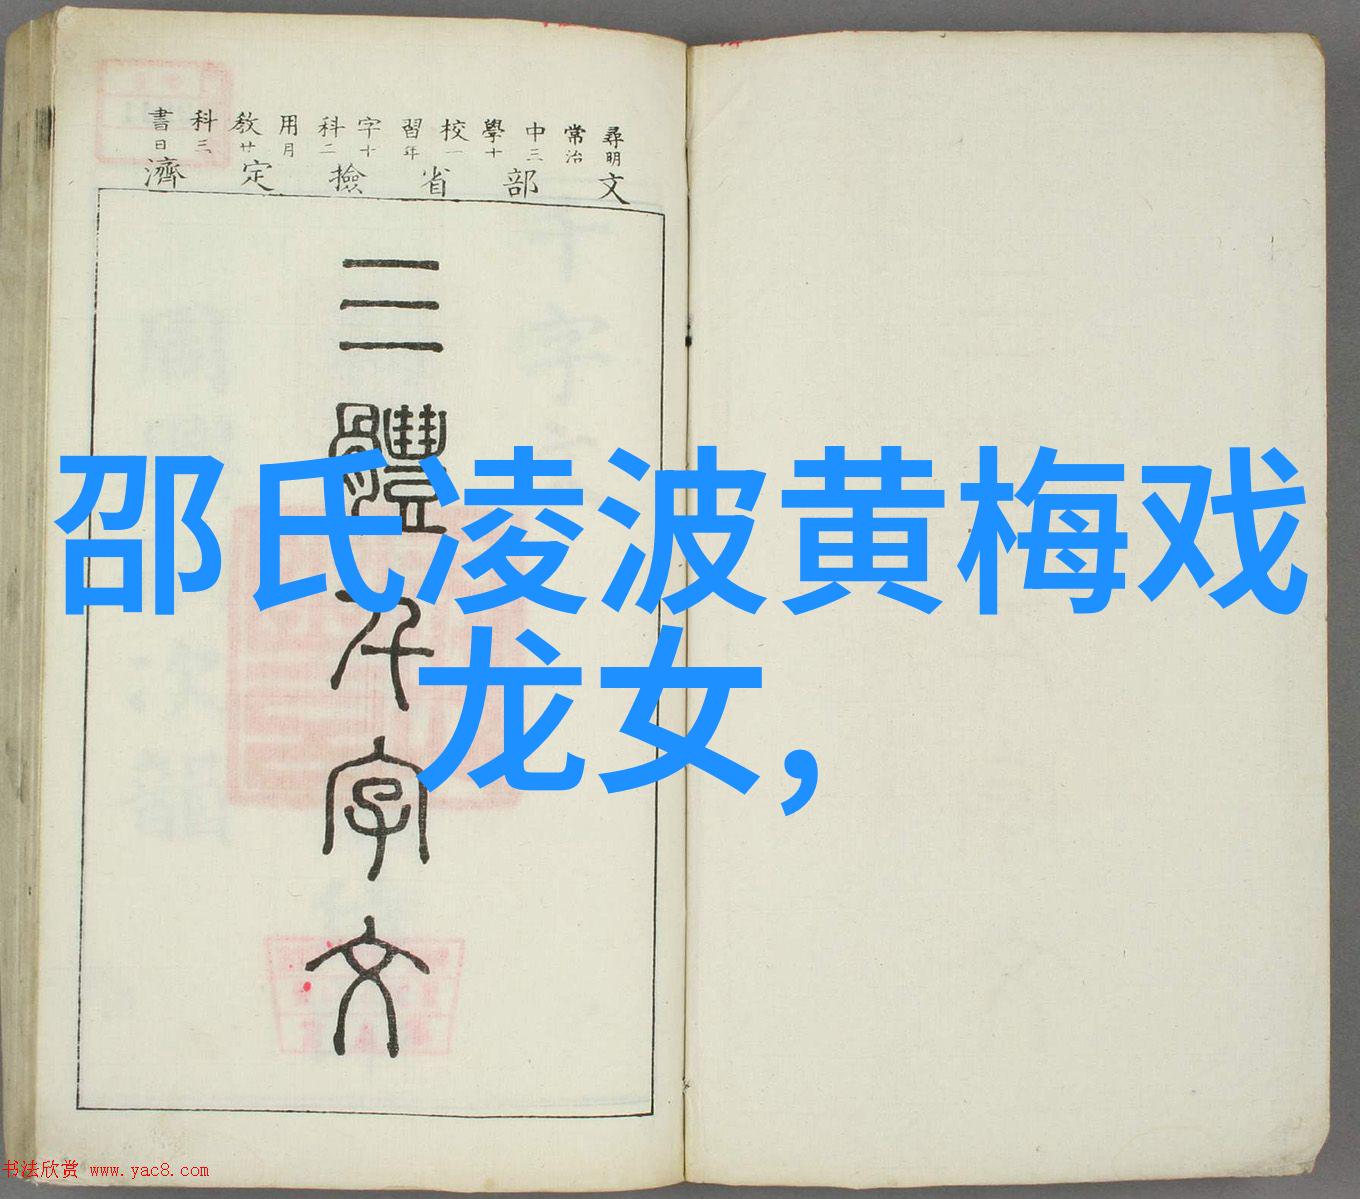 尋常中學校習字科用教科書
明治三十一年十二月廿三日
文部省撿定濟
三體千字文
邵氏凌波黄梅戏
龙女,
书法欣赏 www.yac8.com